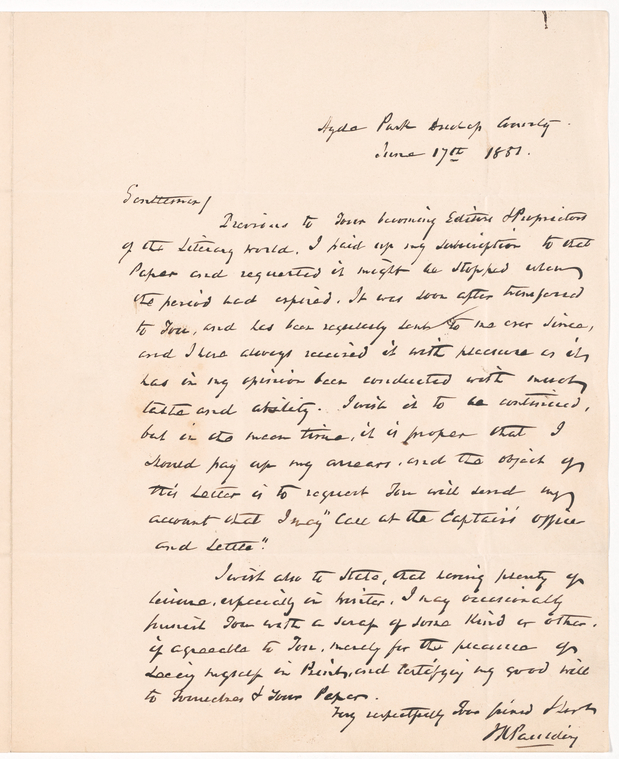 Hyde Park Duchs County.
June 17th 1851.
Gentlemen/
Previous to Your becoming Editors & Proprietors
of the Literary World, I paid up my subscription to that
Paper and requested it might be stopped when
the period had expired. It was soon after transferred
to You, and has been regularly sent to me ever since,
and I have always received it with pleasure as it
has in my opinion been conducted with much
taste and ability. I wish it to be continued,
but in the mean time, it is proper that I
should pay up my arrears, and the object of
this Letter is to request You will send my
account that I may "Call at the Captain's office
and settle".
I wish also to state, that having plenty of
leisure, especially in winter, I may occasionally
furnish You with a scrap of some kind or other,
if agreeable to You, merely for the pleasure of
seeing myself in Print, and testifying my good will
to Yourselves & Your Paper.
Very respectfully Your friend & Servt
JK Paulding